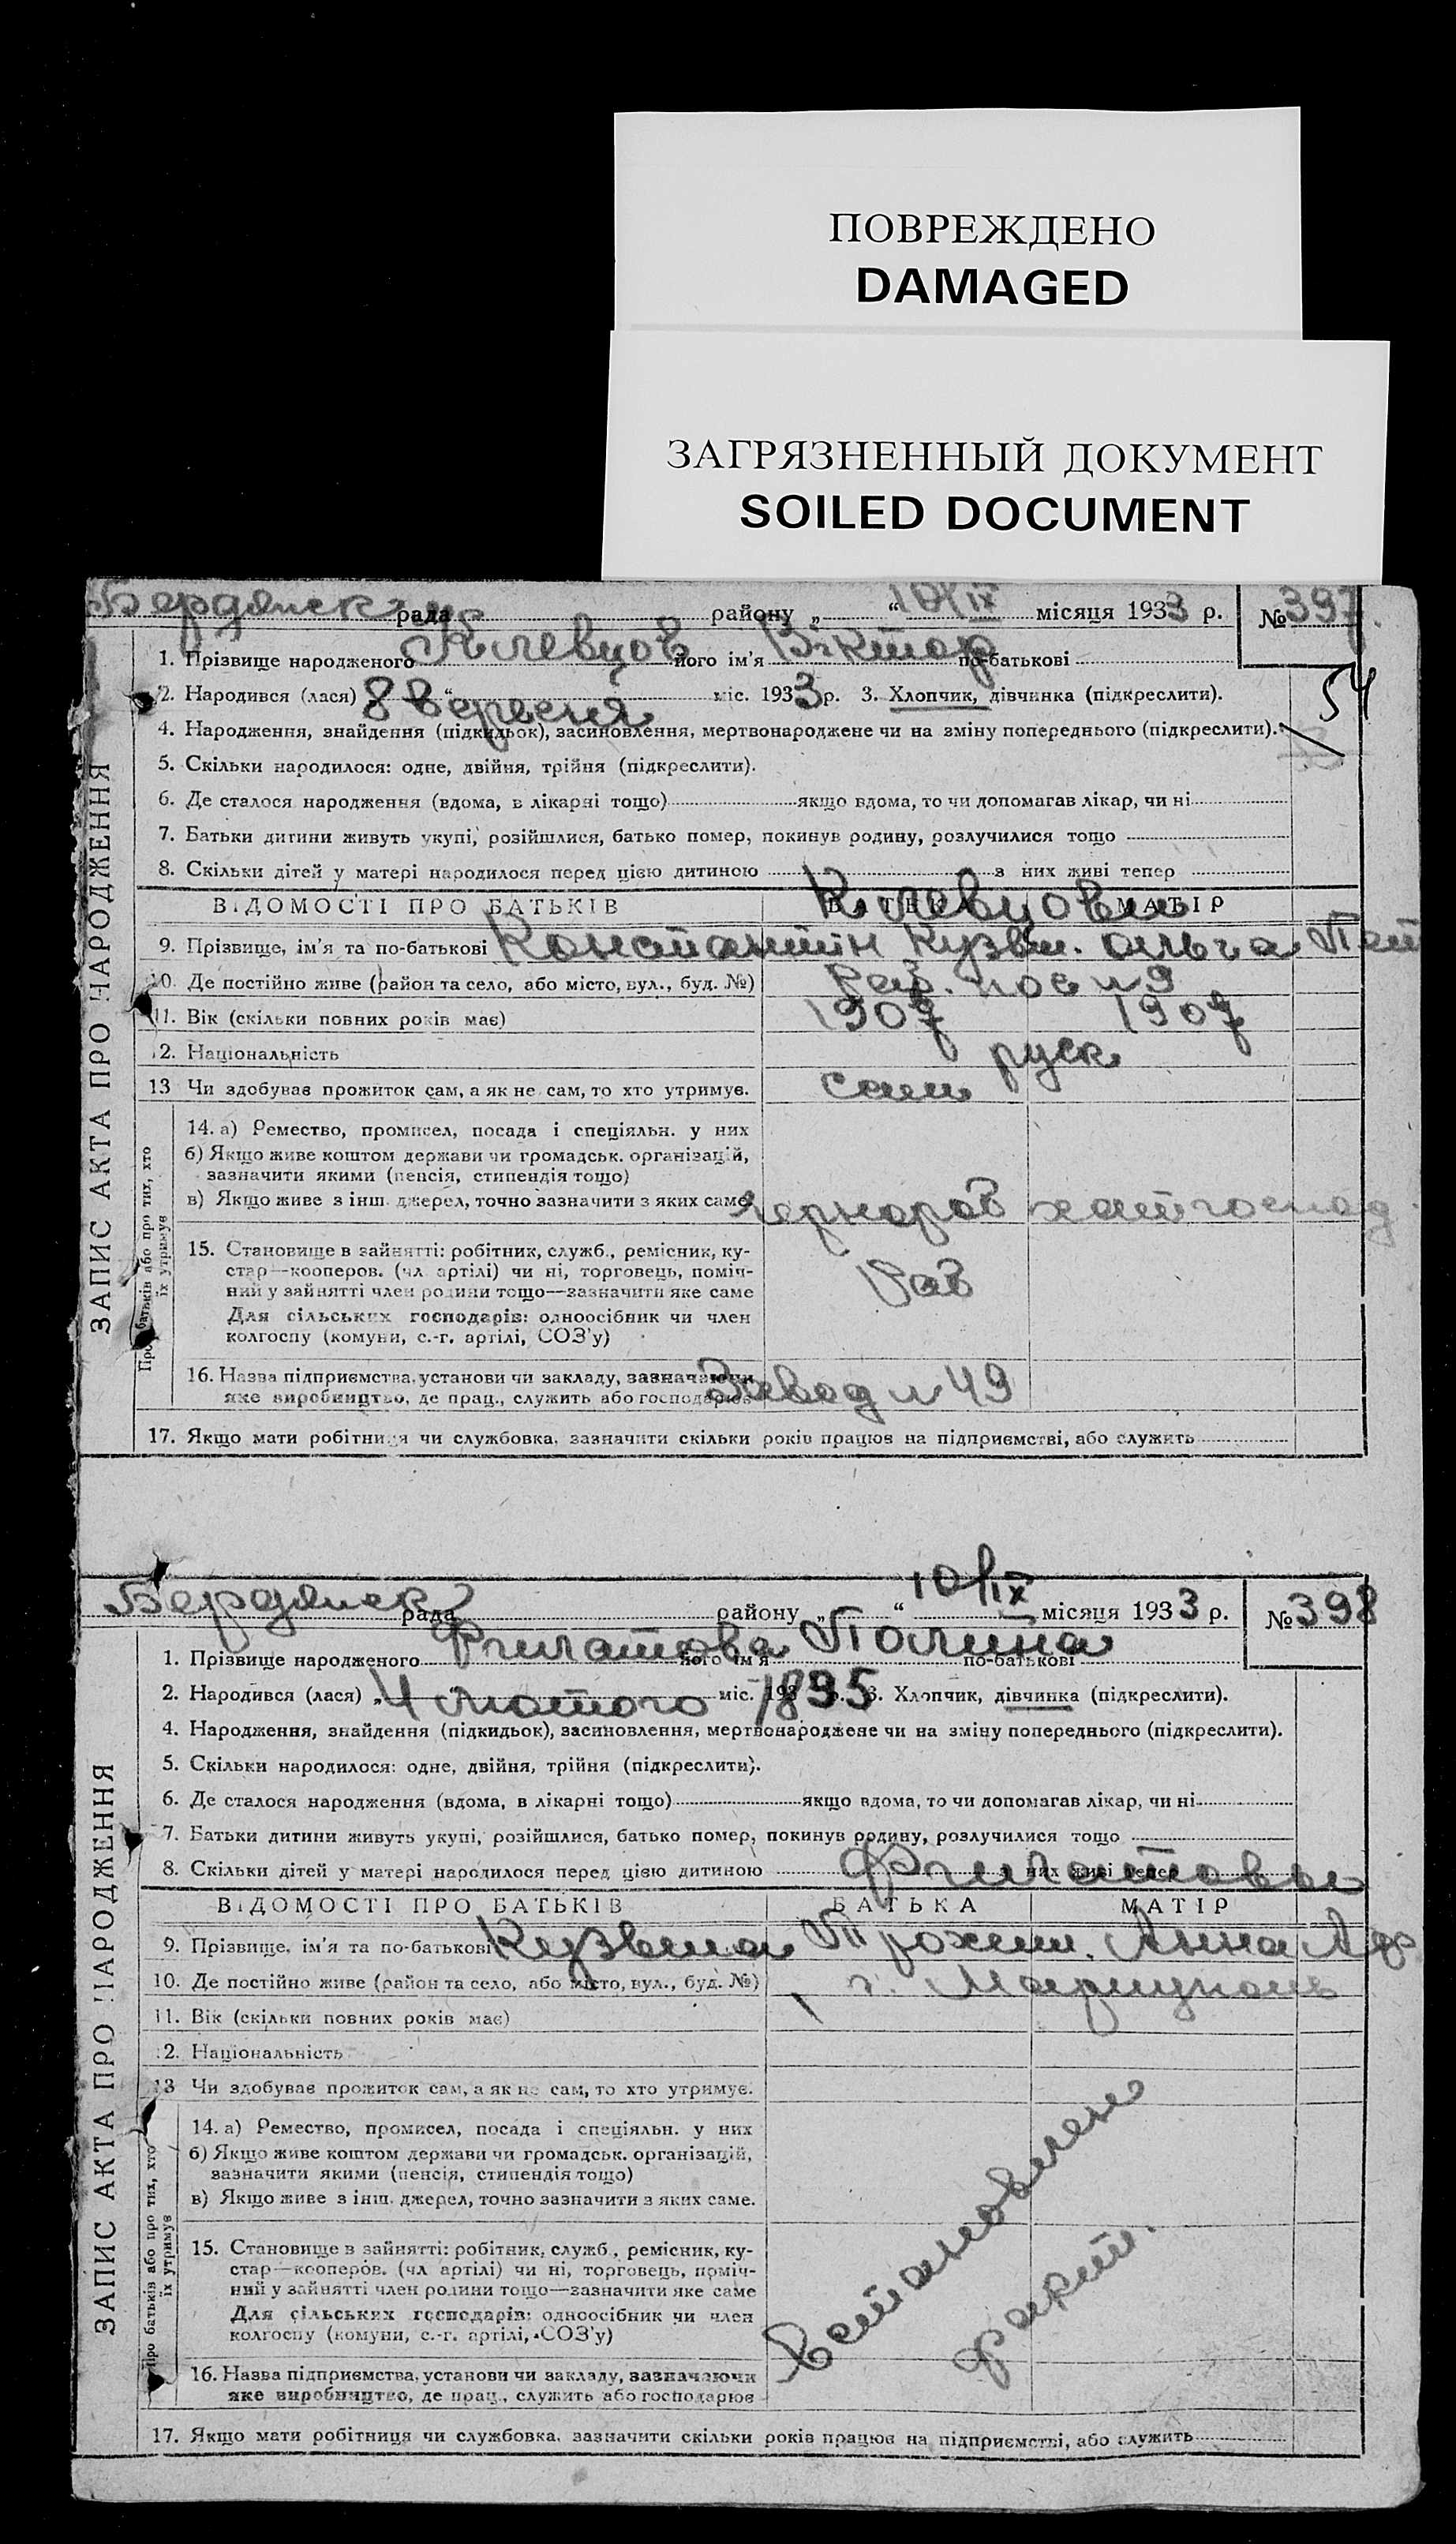 ПОВРЕЖДЕНО
DAMAGED
ЗАГРЯЗНЕННЫЙ ДОКУМЕНТ
SOILED DOCUMENT
Бердянск рада району „ “ 10/IX місяця 1933 р. № 397
1. Прізвище народженого його ім’я Віктор по-батькові
2. Народився (лася) 8 вересня “ міс. 1933 р. 3. Хлопчик, дівчинка (підкреслити).
54
4. Народження, знайдення (підкидьок), засиновлення, мертвонароджене чи на зміну попереднього (підкреслити).
5. Скільки народилося: одне, двійня, трійня (підкреслити).
6. Де сталося народження (вдома, в лікарні тощо) якщо вдома, то чи допомагав лікар, чи ні
7. Батьки дитини живуть укупі, розійшлися, батько помер, покинув родину, розлучилися тощо
8. Скільки дітей у матері народилося перед цією дитиною з них живі тепер
ВІДОМОСТІ ПРО БАТЬКІВ БАТЬКА МАТІР
9. Прізвище, ім’я та по-батькові Константін Кузьм. Ольга
10. Де постійно живе (район та село, або місто, вул., буд. №)
11. Вік (скільки повних років має) 1907 1907
12. Національність руск
13 Чи здобуває прожиток сам, а як не сам, то хто утримує. сам
14. а) Ремество, промисел, посада і спеціяльн. у них
б) Якщо живе коштом держави чи громадськ. організацій,
зазначити якими (пенсія, стипендія тощо)
в) Якщо живе з інш. джерел, точно зазначити з яких саме. чернораб хатгоспод
15. Становище в зайнятті: робітник, служб., ремісник, ку-
стар—кооперов. (чл артілі) чи ні, торговець, поміч-
ний у зайнятті член родини тощо—зазначити яке саме
Раб
Для сільських господарів: одноосібник чи член
колгоспу (комуни, с.-г. артілі, СОЗ’у)
16. Назва підприємства, установи чи закладу, зазначаючи
яке виробництво, де прац., служить або господарює Завод № 49
17. Якщо мати робітниця чи службовка, зазначити скільки років працює на підприємстві, або служить
ЗАПИС АКТА ПРО НАРОДЖЕННЯ
Про батьків або про тих, хто
їх утримує
Бердянск рада району „ “ 10/IX місяця 1933 р. № 398
1. Прізвище народженого Філатова його ім’я Поліна по-батькові
2. Народився (лася) „4 лютого міс. 1895 3. Хлопчик, дівчинка (підкреслити).
4. Народження, знайдення (підкидьок), засиновлення, мертвонароджене чи на зміну попереднього (підкреслити).
5. Скільки народилося: одне, двійня, трійня (підкреслити).
6. Де сталося народження (вдома, в лікарні тощо) якщо вдома, то чи допомагав лікар, чи ні
7. Батьки дитини живуть укупі, розійшлися, батько помер, покинув родину, розлучилися тощо
8. Скільки дітей у матері народилося перед цією дитиною з них живі тепер
Філатовы
ВІДОМОСТІ ПРО БАТЬКІВ БАТЬКА МАТІР
9. Прізвище, ім’я та по-батькові Кузьма Трохим. Анна
10. Де постійно живе (район та село, або місто, вул., буд. №) г. Маріуполь
11. Вік (скільки повних років має)
12. Національність
13 Чи здобуває прожиток сам, а як не сам, то хто утримує.
14. а) Ремество, промисел, посада і спеціяльн. у них
б) Якщо живе коштом держави чи громадськ. організацій,
зазначити якими (пенсія, стипендія тощо)
в) Якщо живе з інш. джерел, точно зазначити з яких саме.
15. Становище в зайнятті: робітник, служб., ремісник, ку-
стар—кооперов. (чл артілі) чи ні, торговець, поміч-
ний у зайнятті член родини тощо—зазначити яке саме
Для сільських господарів: одноосібник чи член
колгоспу (комуни, с.-г. артілі, СОЗ’у)
16. Назва підприємства, установи чи закладу, зазначаючи
яке виробництво, де прац., служить або господарює
17. Якщо мати робітниця чи службовка, зазначити скільки років працює на підприємстві, або служить
Встановлено
факт.
ЗАПИС АКТА ПРО НАРОДЖЕННЯ
Про батьків або про тих, хто
їх утримує